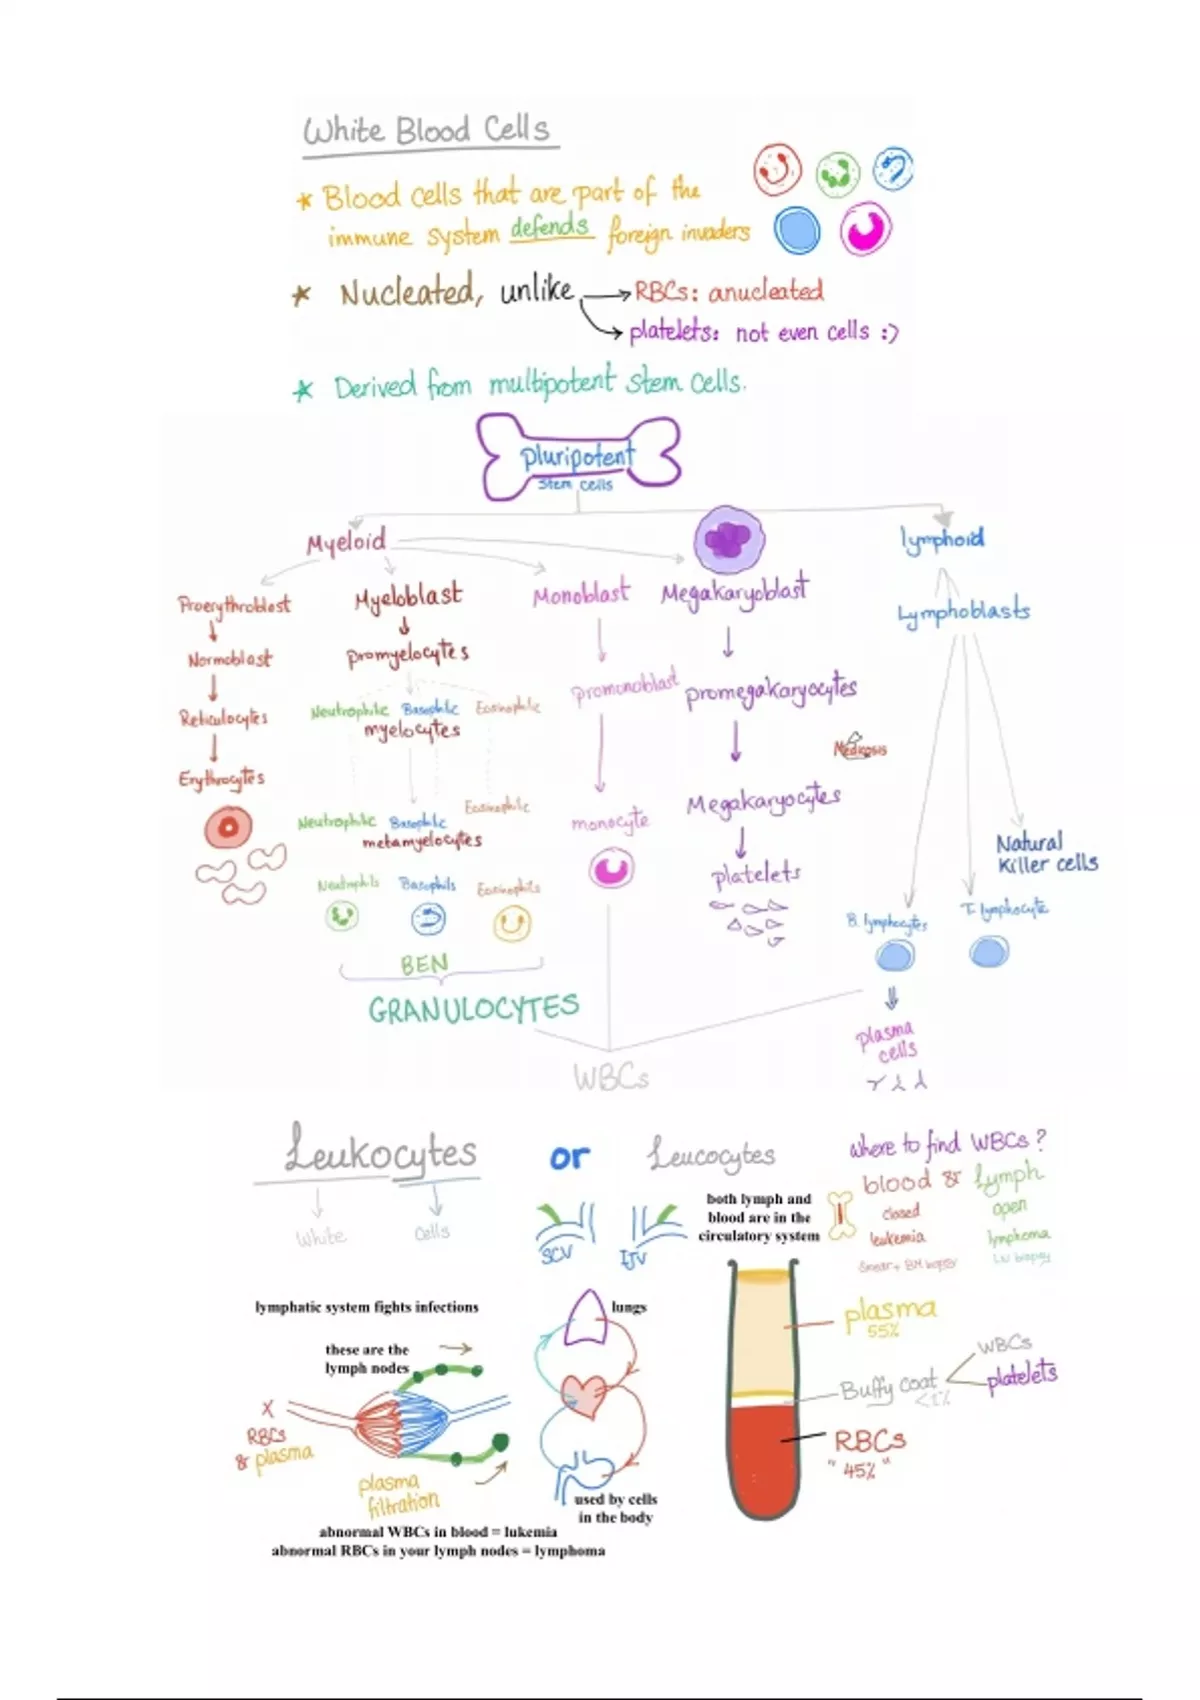 White Blood Cells
* Blood cells that are part of the
immune system defends foreign invaders
* Nucleated, unlike → RBCs: anucleated
→ platelets: not even cells :)
* Derived from multipotent stem cells.
Pluripotent
stem cells
Myeloid
lymphoid
Proerythroblast
Myeloblast
Monoblast
Megakaryoblast
Lymphoblasts
Normoblast
promyelocytes
promonoblast
promegakaryocytes
Reticulocytes
Neutrophilic Basophilic Eosinophilic
myelocytes
Medicosis
Erythrocytes
Neutrophilic Basophilic Eosinophilic
metamyelocytes
monocyte
Megakaryocytes
platelets
Natural
Killer cells
Neutrophils Basophils Eosinophils
B. lymphocytes
T. lymphocyte
BEN
GRANULOCYTES
plasma
cells
WBCs
Leukocytes or Leucocytes
White
Cells
where to find WBCs?
blood & Lymph
closed
open
leukemia
lymphoma
Smear + BM biopsy
LN biopsy
both lymph and
blood are in the
circulatory system
SCV
IJV
lymphatic system fights infections
lungs
these are the
lymph nodes
X
RBCs
& plasma
plasma
filtration
used by cells
in the body
abnormal WBCs in blood = lukemia
abnormal RBCs in your lymph nodes = lymphoma
plasma
55%
Buffy coat
<1%
WBCs
platelets
RBCs
"45%"